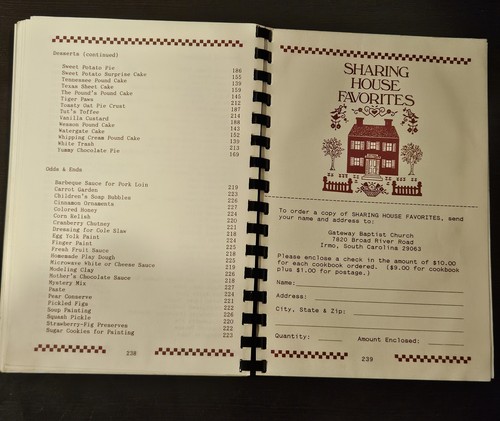 Desserts (continued)
Sweet Potato Pie 186
Sweet Potato Surprise Cake 155
Tennessee Pound Cake 139
Texas Sheet Cake 159
The Pound's Pound Cake 145
Tiger Paws 212
Toasty Oat Pie Crust 187
Tut's Toffee 214
Vanilla Custard 188
Wesson Pound Cake 143
Watergate Cake 152
Whipping Cream Pound Cake 139
White Trash 213
Yummy Chocolate Pie 169
Odds & Ends
Barbeque Sauce for Pork Loin 219
Carrot Garden 223
Children's Soap Bubbles 226
Cinnamon Ornaments 227
Colored Honey 224
Corn Relish 220
Cranberry Chutney 221
Dressing for Cole Slaw 218
Egg Yolk Paint 224
Finger Paint 225
Fresh Fruit Sauce 218
Homemade Play Dough 225
Microwave White or Cheese Sauce 219
Modeling Clay 224
Mother's Chocolate Sauce 218
Mystery Mix 227
Paste
Pear Conserve 221
Pickled Figs 222
Soap Painting 226
Squash Pickle 220
Strawberry-Fig Preserves 222
Sugar Cookies for Painting 223
238
SHARING
HOUSE
FAVORITES
To order a copy of SHARING HOUSE FAVORITES, send
your name and address to:
Gateway Baptist Church
7820 Broad River Road
Irmo, South Carolina 29063
Please enclose a check in the amount of $10.00
for each cookbook ordered. ($9.00 for cookbook
plus $1.00 for postage.)
Name:
Address:
City, State & Zip:
Quantity: Amount Enclosed:
239